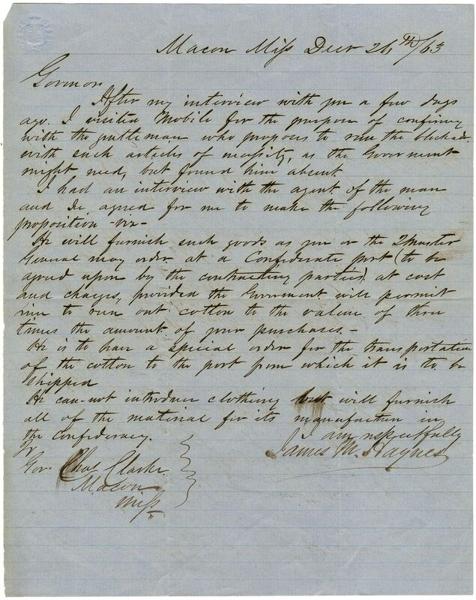 Macon Miss Decr 26th/63
Govenor
After my interview with you a few days
ago. I visited Mobile for the purpose of confering
with the gentleman who proposes to run the blockade
with such articles of necessity, as the Government
might need, but found him absent
I had an interview with the agent of the man
and he agreed for me to make the following
proposition -viz-
He will furnish such goods as you or the Qmaster
General may order at a Confederate port (to be
agreed upon by the contracting parties) at cost
and charges, provided the Government will permit
him to run out cotton to the value of three
times the amount of your purchases. -
He is to have a special order for the transportation
of the cotton to the port from which it is to be
Shipped
He can-not introduce clothing but will furnish
all of the material for its manufacture in
the Confederacy.
I am respectfully
James M. Haynes
To
Gov. Chas Clarke
Macon
Miss